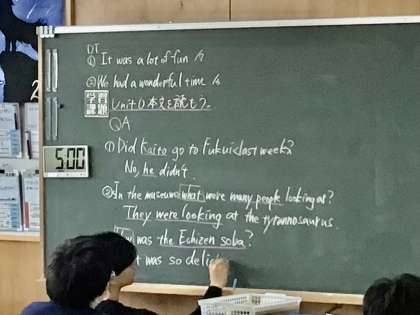 DT
① It was a lot of fun
② We had a wonderful time
学習課題 Unit0 本文を読もう。
QA
① Did Kaito go to Fukui last week?
No, he didn't.
5:00
② In the museum, what were many people looking at?
They were looking at the tyrannosaurus.
was the Echizen soba?
was so delic